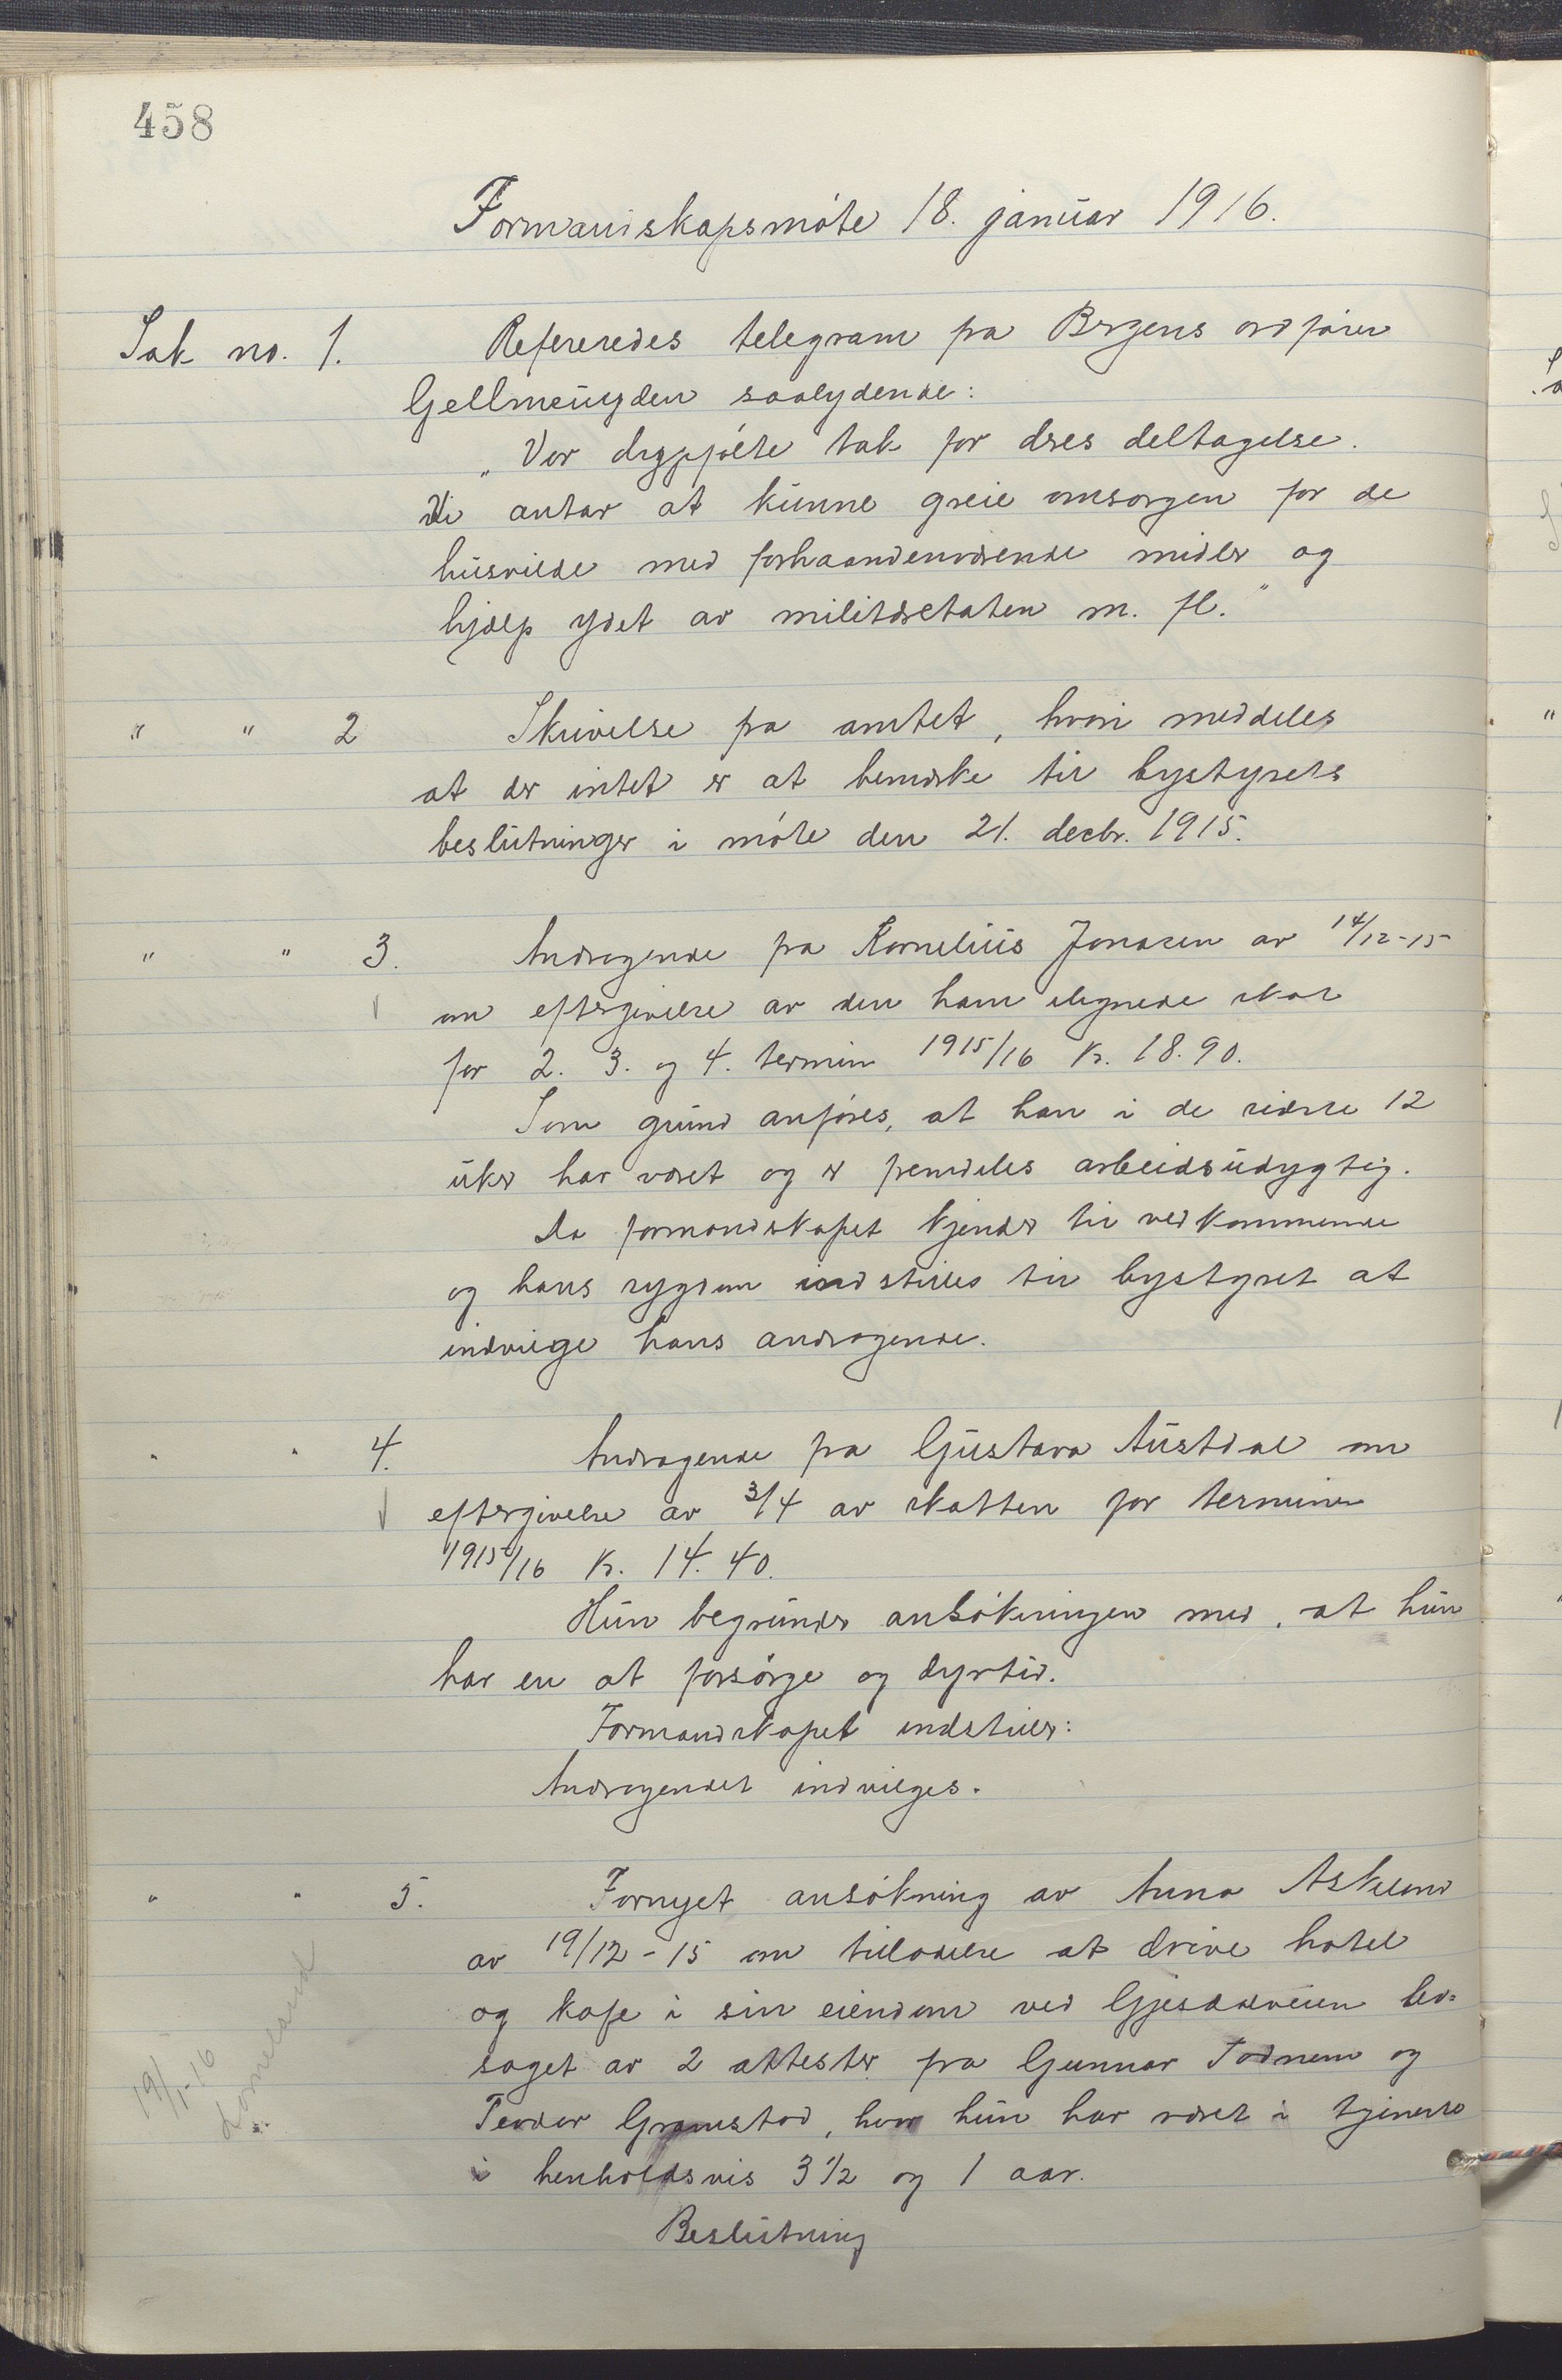 458
Formandskapsmöte 18. januar 1916.
Sak no. 1. Refereredes telegram fra Bergens ordförer
Gellmeuyden saalydende:
„Vor dypfölte tak for deres deltagelse.
Vi antar at kunne greie omsorgen for de
husvilde med forhaandenværende midler og
hjælp ydet av militæretaten m. fl."
" " 2 Skrivelse fra amtet, hvori meddeles
at der intet er at bemerke til bystyrets
beslutninger i möte den 21. decbr. 1915.
" " 3. Andragende fra Kornelius Jonasen av 14/12-15
om eftergivelse av den ham ilignede skat
for 2. 3. og 4. termin 1915/16 kr. 18.90.
Som grund anföres, at han i de sidste 12
uker har været og er fremdeles arbeidsudygtig.
Da formandskapet kjender til vedkommende
og hans sygdom indstilles til bystyret at
indvilge hans andragende.
" " 4. Andragende fra Gustava Austdal om
eftergivelse av 3/4 av skatten for terminen
1915/16 kr. 14.40.
Hun begrunder ansökningen med, at hun
har en at forsörge og dyrtid.
Formandskapet indstiller:
Andragendet indvilges.
" " 5. Fornyet ansökning av Anna Askeland
av 19/12-15 om tilladelse at drive hotel
og kafe i sin eiendom ved Gjesdalveien led-
saget av 2 attester fra Gunnar Todnem og
Teodor Gramstad, hvor hun har været i tjeneste
i henholdsvis 3 1/2 og 1 aar.
Beslutning
19/1-16